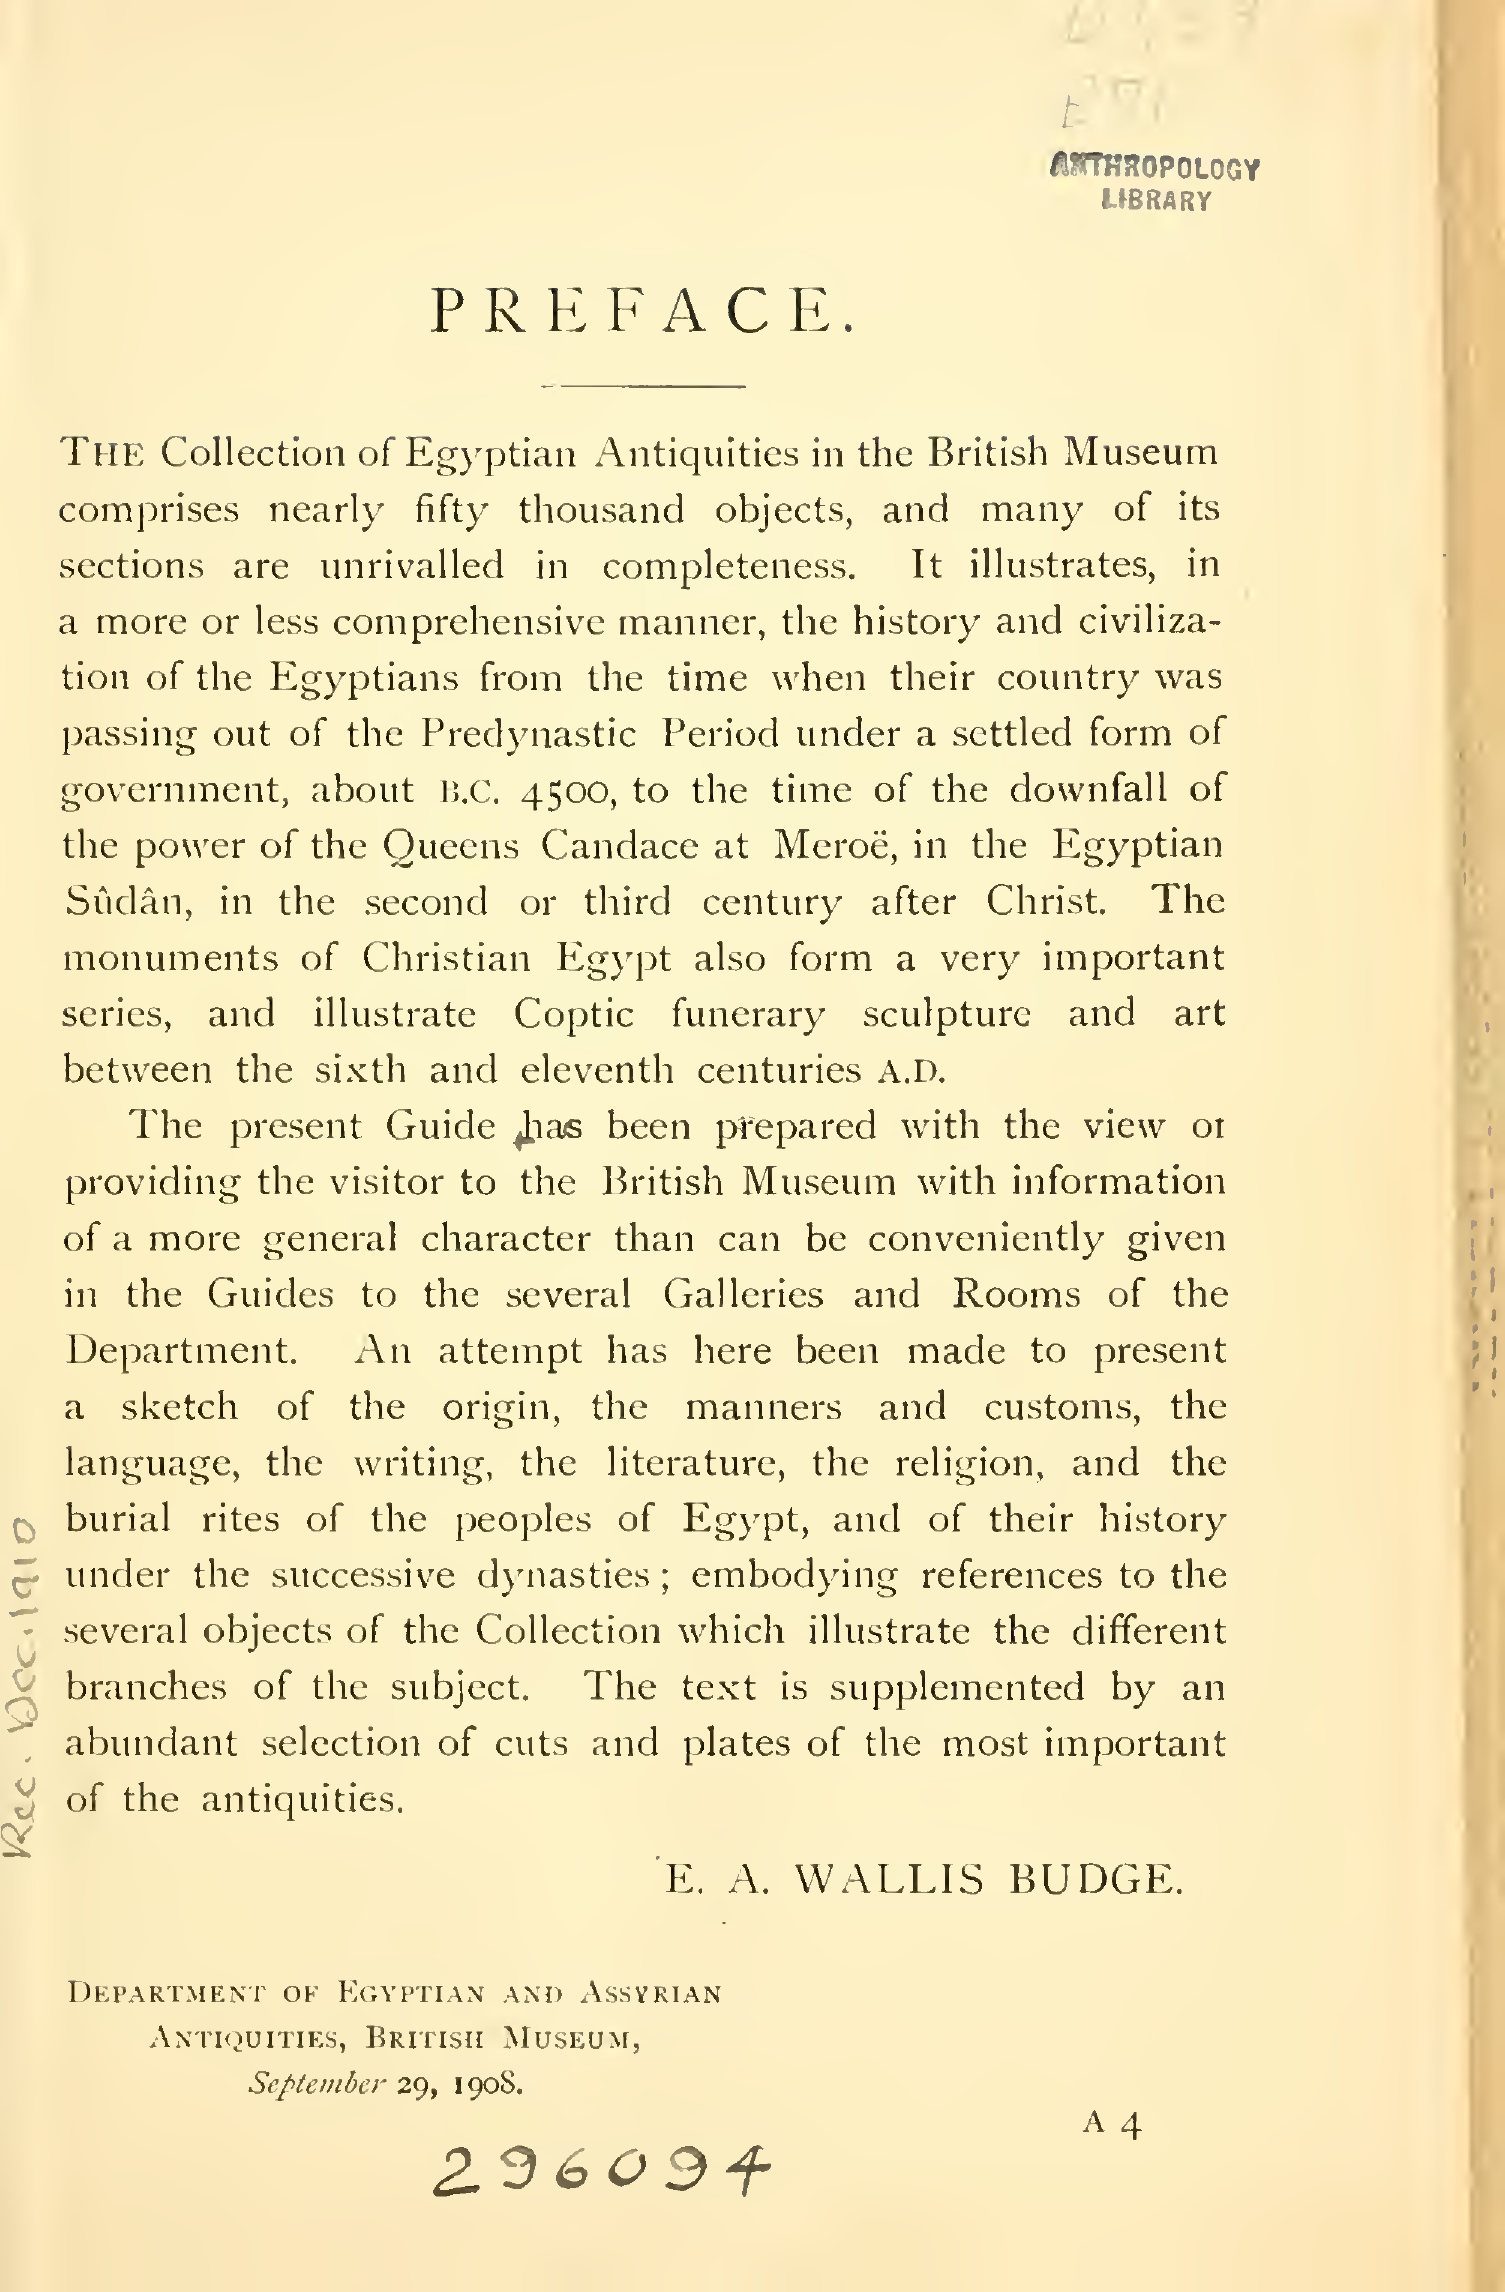 ANTHROPOLOGY
LIBRARY
PREFACE.
THE Collection of Egyptian Antiquities in the British Museum
comprises nearly fifty thousand objects, and many of its
sections are unrivalled in completeness. It illustrates, in
a more or less comprehensive manner, the history and civiliza-
tion of the Egyptians from the time when their country was
passing out of the Predynastic Period under a settled form of
government, about B.C. 4500, to the time of the downfall of
the power of the Queens Candace at Meroë, in the Egyptian
Sûdân, in the second or third century after Christ. The
monuments of Christian Egypt also form a very important
series, and illustrate Coptic funerary sculpture and art
between the sixth and eleventh centuries A.D.
The present Guide has been prepared with the view of
providing the visitor to the British Museum with information
of a more general character than can be conveniently given
in the Guides to the several Galleries and Rooms of the
Department. An attempt has here been made to present
a sketch of the origin, the manners and customs, the
language, the writing, the literature, the religion, and the
burial rites of the peoples of Egypt, and of their history
under the successive dynasties; embodying references to the
several objects of the Collection which illustrate the different
branches of the subject. The text is supplemented by an
abundant selection of cuts and plates of the most important
of the antiquities.
E. A. WALLIS BUDGE.
DEPARTMENT OF EGYPTIAN AND ASSYRIAN
ANTIQUITIES, BRITISH MUSEUM,
September 29, 1908.
A 4
296094
Rec. Dec. 1910